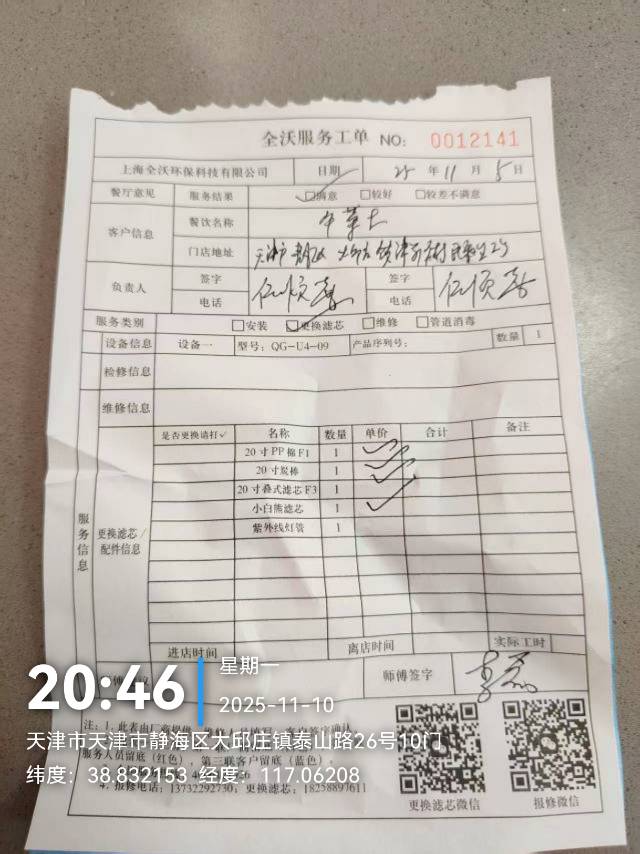 全沃服务工单 NO: 0012141
上海全沃环保科技有限公司 日期 25 年 11 月 5 日
餐厅意见 服务结果 满意 较好 较差不满意
客户信息 餐饮名称
门店地址 天津市
负责人 签字 签字
电话 电话
服务类别 安装 更换滤芯 维修 管道消毒
设备信息 设备一 型号: QG-U4-09 产品序列号: 数量 1
检修信息
维修信息
服务信息 更换滤芯/配件信息 是否更换请打✓ 名称 数量 单价 合计 备注
20寸PP棉F1 1 ✓
20寸炭棒 1 ✓
20寸叠式滤芯F3 1 ✓
小白熊滤芯 1 ✓
紫外线灯管 1
进店时间 离店时间 实际工时
师傅签字
20:46 星期一
2025-11-10
注: 1. 此表由厂商提供
天津市天津市静海区大邱庄镇泰山路26号10门
服务人员留底（红色），第三联客户留底（蓝色）。
纬度: 38.832153 经度: 117.06208
4. 报修电话: 13732292730; 更换滤芯: 18258897611
更换滤芯微信 报修微信